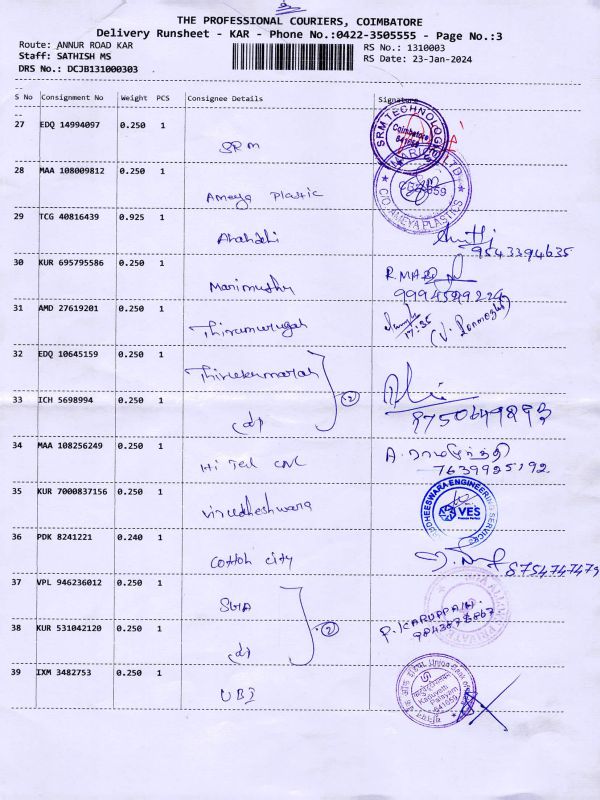 THE PROFESSIONAL COURIERS, COIMBATORE
Delivery Runsheet - KAR - Phone No.:0422-3505555 - Page No.:3
Route: ANNUR ROAD KAR
Staff: SATHISH MS
DRS No.: DCJB131000303
RS No.: 1310003
RS Date: 23-Jan-2024
S No Consignment No Weight PCS Consignee Details Signature
27 EDQ 14994097 0.250 1
SRM
SRM TECHNOLOGI
Coimbatore
641659
28 MAA 108009812 0.250 1
Ameya Plastic
C/O. AMEYA PLASTICS
29 TCG 40816439 0.925 1
9543394635
30 KUR 695795586 0.250 1
Marimuthu
R.MARI
31 AMD 27619201 0.250 1
Thirumurugan
17:35
32 EDQ 10645159 0.250 1
Thirukumaran
33 ICH 5698994 0.250 1
(2)
34 MAA 108256249 0.250 1
Hi Tech CNC
7639925192
35 KUR 7000837156 0.250 1
Virudheshwara
UDHEESWARA ENGINEERING SERVICES
VES
36 PDK 8241221 0.240 1
Cotton city
8754747479
37 VPL 946236012 0.250 1
P. KARUPPAIAH
38 KUR 531042120 0.250 1
(2)
39 IXM 3482753 0.250 1
UBI
Union Bank
Kaduvetti
Palayam
641659